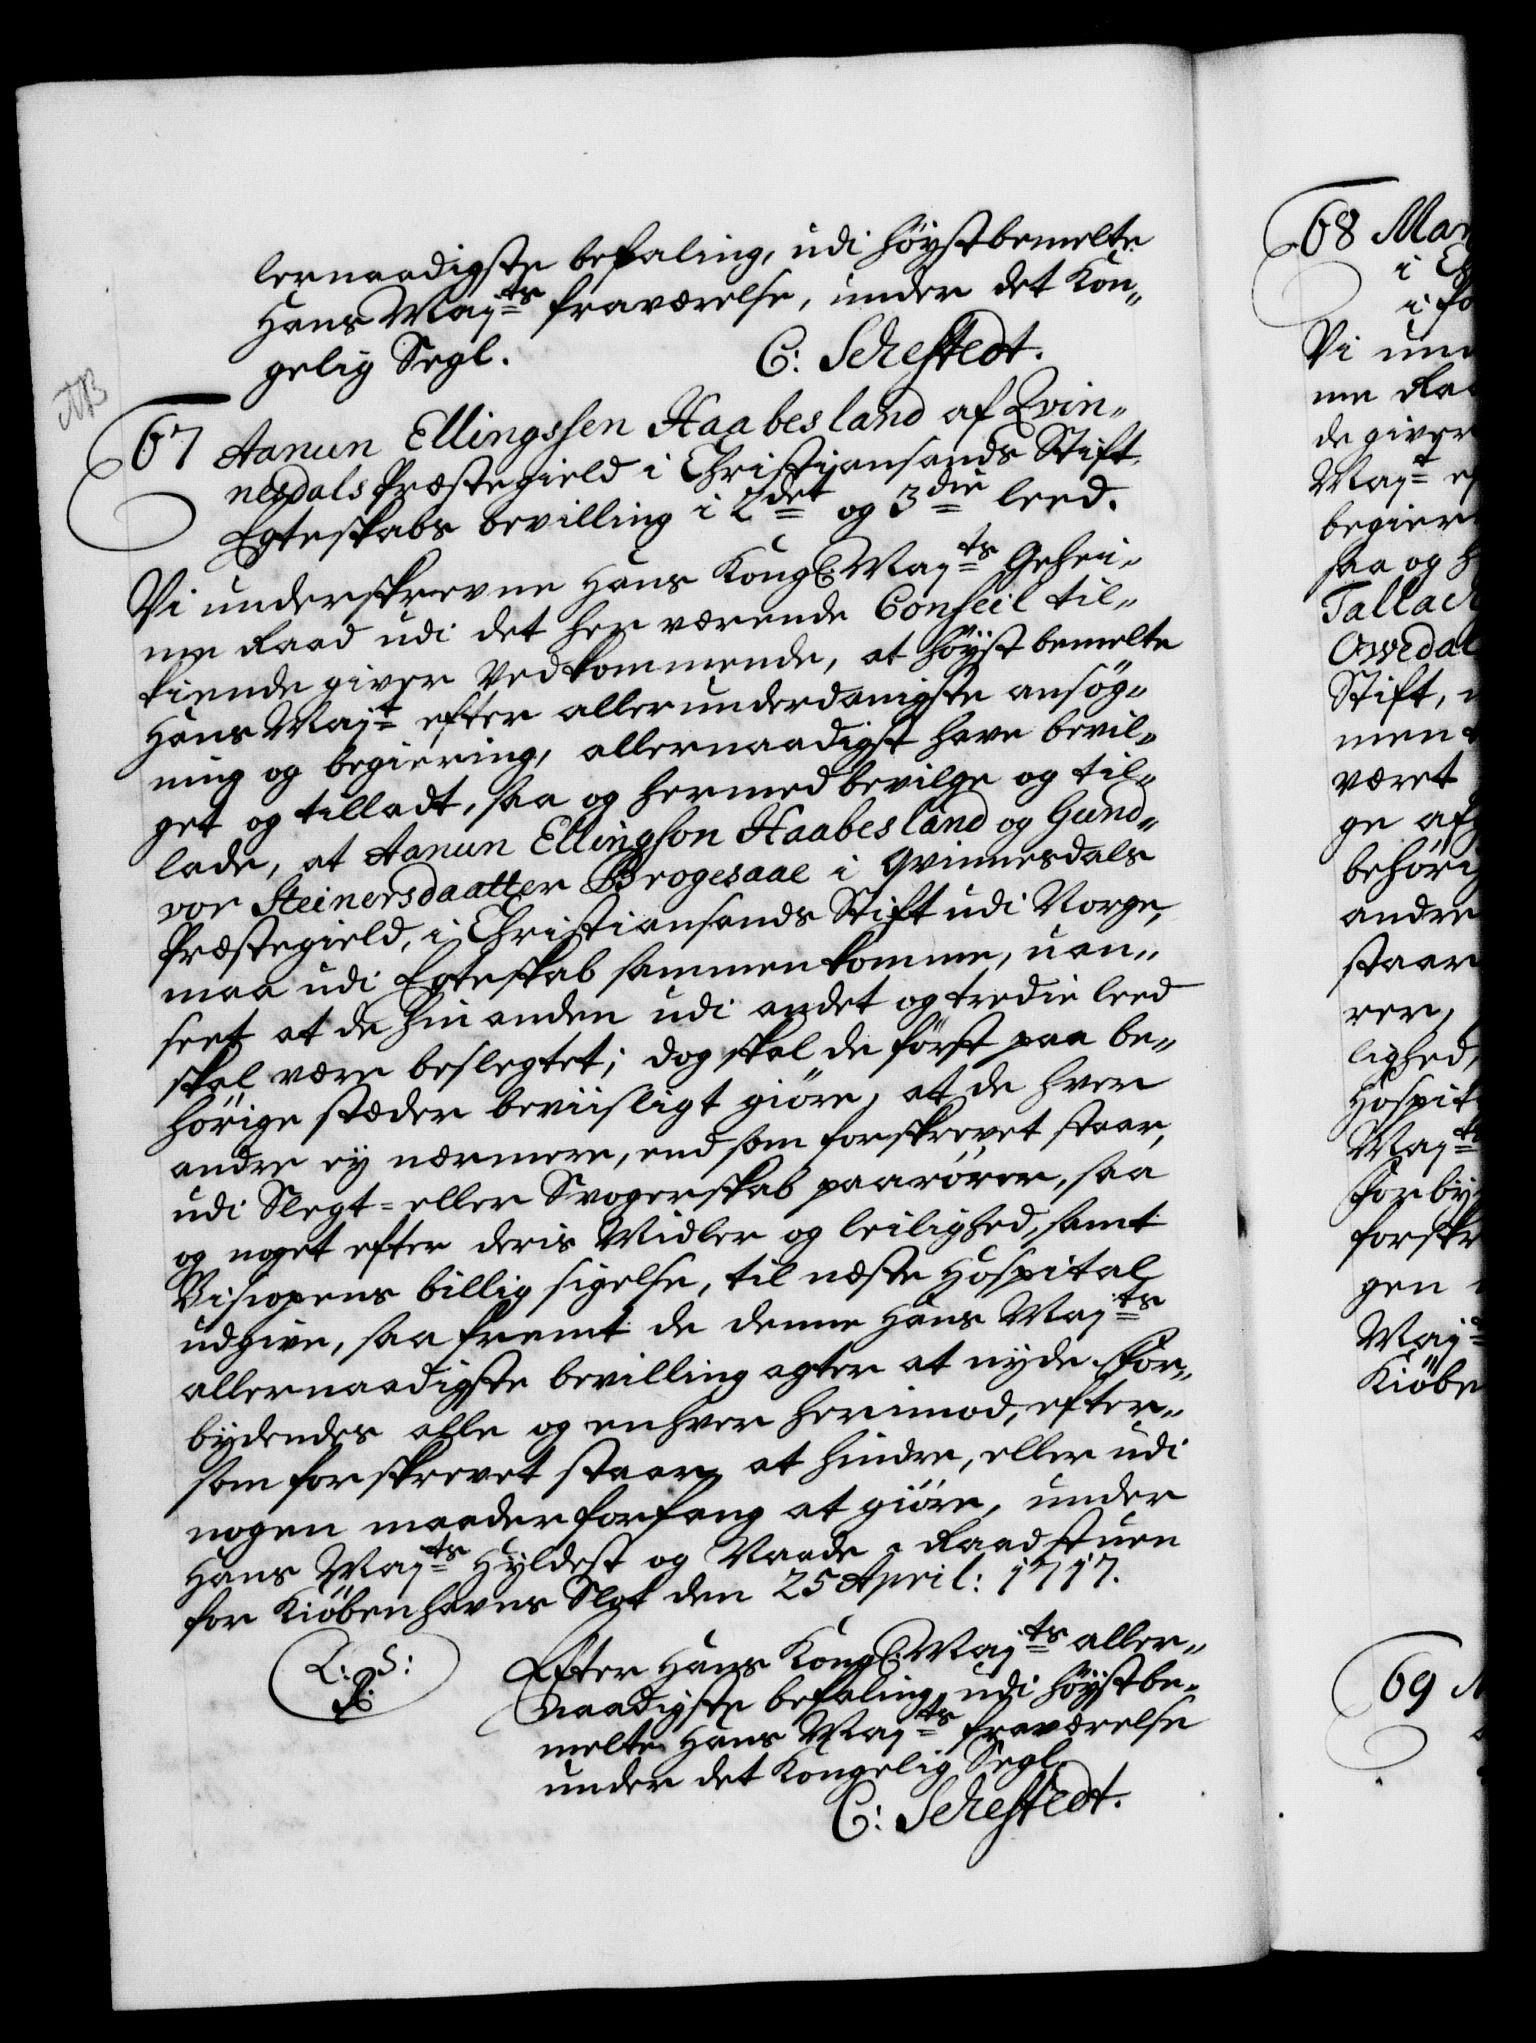 lernaadigste befaling, udi höystbemelte
Hans Maj:ts fraværelse, under det Kon-
gelig Segl.
C: Sehestedt.
NB
67 Aanun Ellingssen Haabesland af Qvin-
nesdals Præstegield i Christiansands Stift
Egteskabs bevilling i 2det og 3die leed.
Vi underskrevne Hans Kongl: Maj:ts Gehei-
me Raad udi det her værende Conseil til-
kiende giver Vedkommende, at höyst bemelte
Hans Maj:t efter allerunderdanigste ansög-
ning og begiering, allernaadigst have bevil-
get og tilladt, saa og hermed bevilge og til-
lade, at Aanun Ellingson Haabesland og Gund-
vor Steinersdaatter Brogesaae i Qvinnesdals
Præstegield, i Christiansands Stift udi Norge,
maa udi Egteskab sammenkomme, uan-
seet at de hin anden udi andet og tredie leed
skal være beslegtet; dog skal de först paa be-
hörige stæder beviisligt giöre, at de hver
andre ey nærmere, end som forskrevet staar,
udi Slegt- eller Svogerskab paarörer, saa
og noget efter deris Midler og leilighed, samt
Bispens billig sigelse, til næste Hospital
udgive, saa fremt de denne Hans Maj:ts
allernaadigste bevilling agter at nyde. For-
bydendes alle og enhver herimod, efter-
som forskrevet staar, at hindre, eller udi
nogen maader forfang at giöre, under
Hans Maj:ts Hyldest og Naade. Raadstuen
for Kiöbenhavns Slot den 25 April: 1717.
L: S:
Efter Hans Kongl: Maj:ts aller-
naadigste befaling, udi höystbe-
melte Hans Maj:ts fraværelse
under det Kongelig Segl.
C: Sehestedt.
68 Mar
i
i
Vi und
me Raa
de giver
Maj:t ef
begier
saa og h
Tallack
Owedal
Stift,
men
været
ge af
behörig
andre
staar
rer,
lighed,
Hospit
Maj:ts
Forby
forskr
gen
Maj:
Kiöbe
69